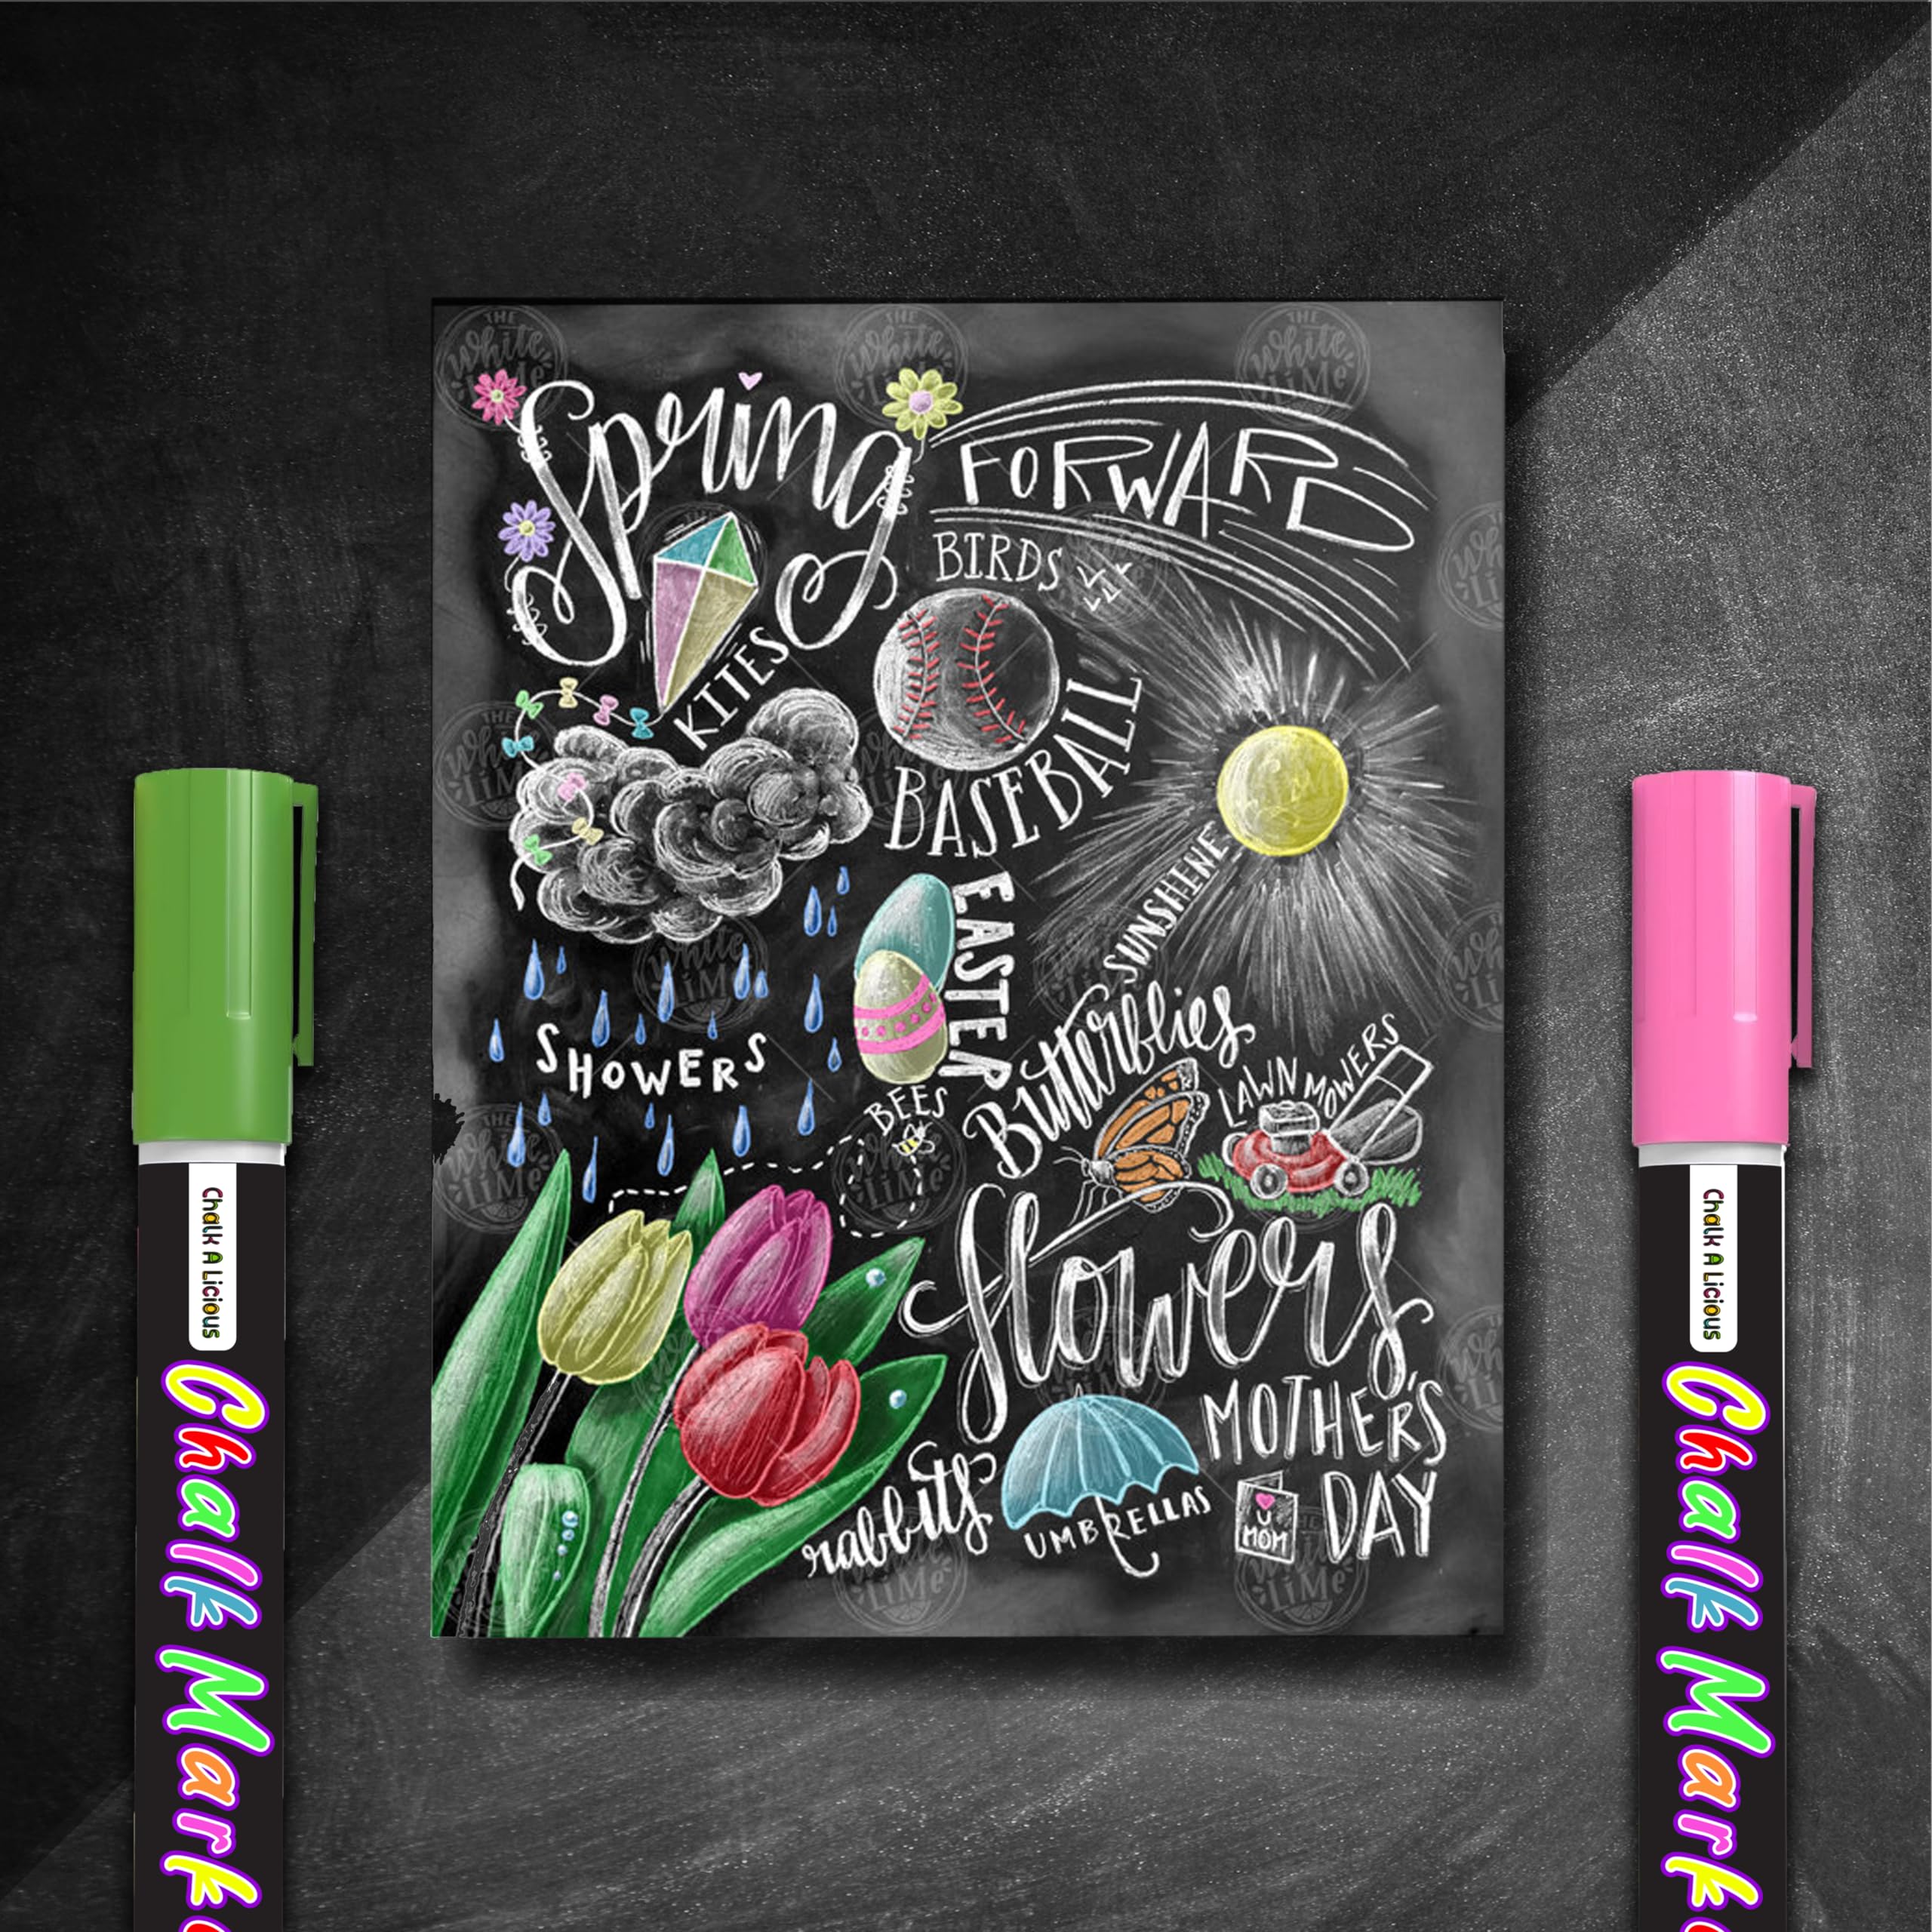 Spring
FORWARD
BIRDS
KITES
BASEBALL
SUNSHINE
EASTER
SHOWERS
Butterflies
LAWN MOWERS
BEES
flowers
MOTHER'S
DAY
rabbits
UMBRELLAS
U
MOM
THE
White
LiMe
Chalk A Licious
Chalk Marke
Chalk A Licious
Chalk Marke